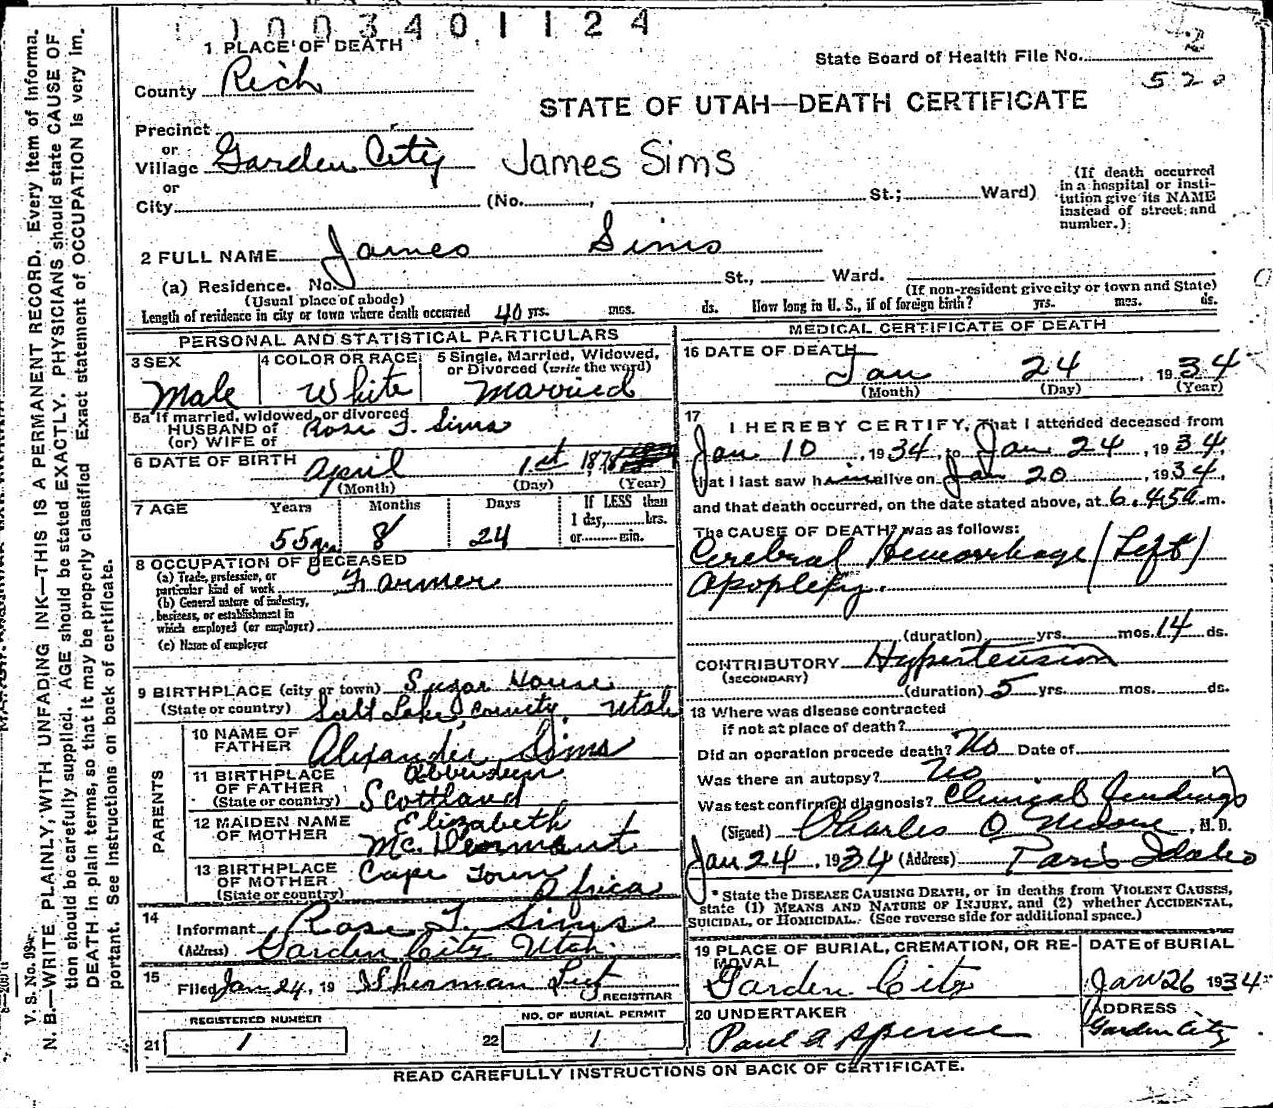 1003401124
1 PLACE OF DEATH
State Board of Health File No. 2
520
County Rich
STATE OF UTAH—DEATH CERTIFICATE
Precinct
or
Village Garden City James Sims
or
City (No. , St.; Ward)
(If death occurred in a hospital or institution give its NAME instead of street and number.)
2 FULL NAME James Sims
(a) Residence. No. St., Ward.
(Usual place of abode) (If non-resident give city or town and State)
Length of residence in city or town where death occurred 40 yrs. mos. ds. How long in U. S., if of foreign birth? yrs. mos. ds.
PERSONAL AND STATISTICAL PARTICULARS
3 SEX 4 COLOR OR RACE 5 Single, Married, Widowed, or Divorced (write the word)
Male White Married
5a If married, widowed, or divorced
HUSBAND of Rose T. Sims
(or) WIFE of
6 DATE OF BIRTH April 1st 1878
(Month) (Day) (Year)
7 AGE Years Months Days If LESS than
1 day, hrs.
or min.
55 yrs 8 24
8 OCCUPATION OF DECEASED
(a) Trade, profession, or
particular kind of work Farmer
(b) General nature of industry,
business, or establishment in
which employed (or employer)
(c) Name of employer
9 BIRTHPLACE (city or town) Sugar House
(State or country) Salt Lake County, Utah
PARENTS
10 NAME OF FATHER Alexander Sims
11 BIRTHPLACE OF FATHER Abberdeen
(State or country) Scottland
12 MAIDEN NAME OF MOTHER Elizabeth
13 BIRTHPLACE OF MOTHER Cape Town
(State or country) Africa
14
Informant Rose T. Sims
(Address) Garden City Utah.
15
Filed Jan 24, 19 Sherman
REGISTRAR
REGISTERED NUMBER
21 1
NO. OF BURIAL PERMIT
22 1
MEDICAL CERTIFICATE OF DEATH
16 DATE OF DEATH
Jan 24, 1934
(Month) (Day) (Year)
17 I HEREBY CERTIFY, That I attended deceased from
Jan 10, 1934, to Jan 24, 1934,
that I last saw him alive on Jan 20, 1934,
and that death occurred, on the date stated above, at 6.45a m.
The CAUSE OF DEATH* was as follows:
Cerebral Hemorrhage (Left)
Apoplexy.
(duration) yrs. mos. 14 ds.
CONTRIBUTORY Hypertension
(SECONDARY)
(duration) 5 yrs. mos. ds.
18 Where was disease contracted
if not at place of death?
Did an operation precede death? No Date of
Was there an autopsy? No
Was test confirmed diagnosis? Clinical findings
(Signed) Charles O , M. D.
Jan 24, 1934 (Address) Paris Idaho
* State the DISEASE CAUSING DEATH, or in deaths from VIOLENT CAUSES,
state (1) MEANS AND NATURE OF INJURY, and (2) whether ACCIDENTAL,
SUICIDAL, or HOMICIDAL. (See reverse side for additional space.)
19 PLACE OF BURIAL, CREMATION, OR RE-
MOVAL
Garden City
DATE of BURIAL
Jan 26 1934
20 UNDERTAKER
Paul A Spence
ADDRESS
Garden City
READ CAREFULLY INSTRUCTIONS ON BACK OF CERTIFICATE.
V. S. No. 99
N. B.—WRITE PLAINLY, WITH UNFADING INK—THIS IS A PERMANENT RECORD. Every item of informa-
tion should be carefully supplied. AGE should be stated EXACTLY. PHYSICIANS should state CAUSE OF
DEATH in plain terms, so that it may be properly classified. Exact statement of OCCUPATION is very im-
portant. See Instructions on back of certificate.